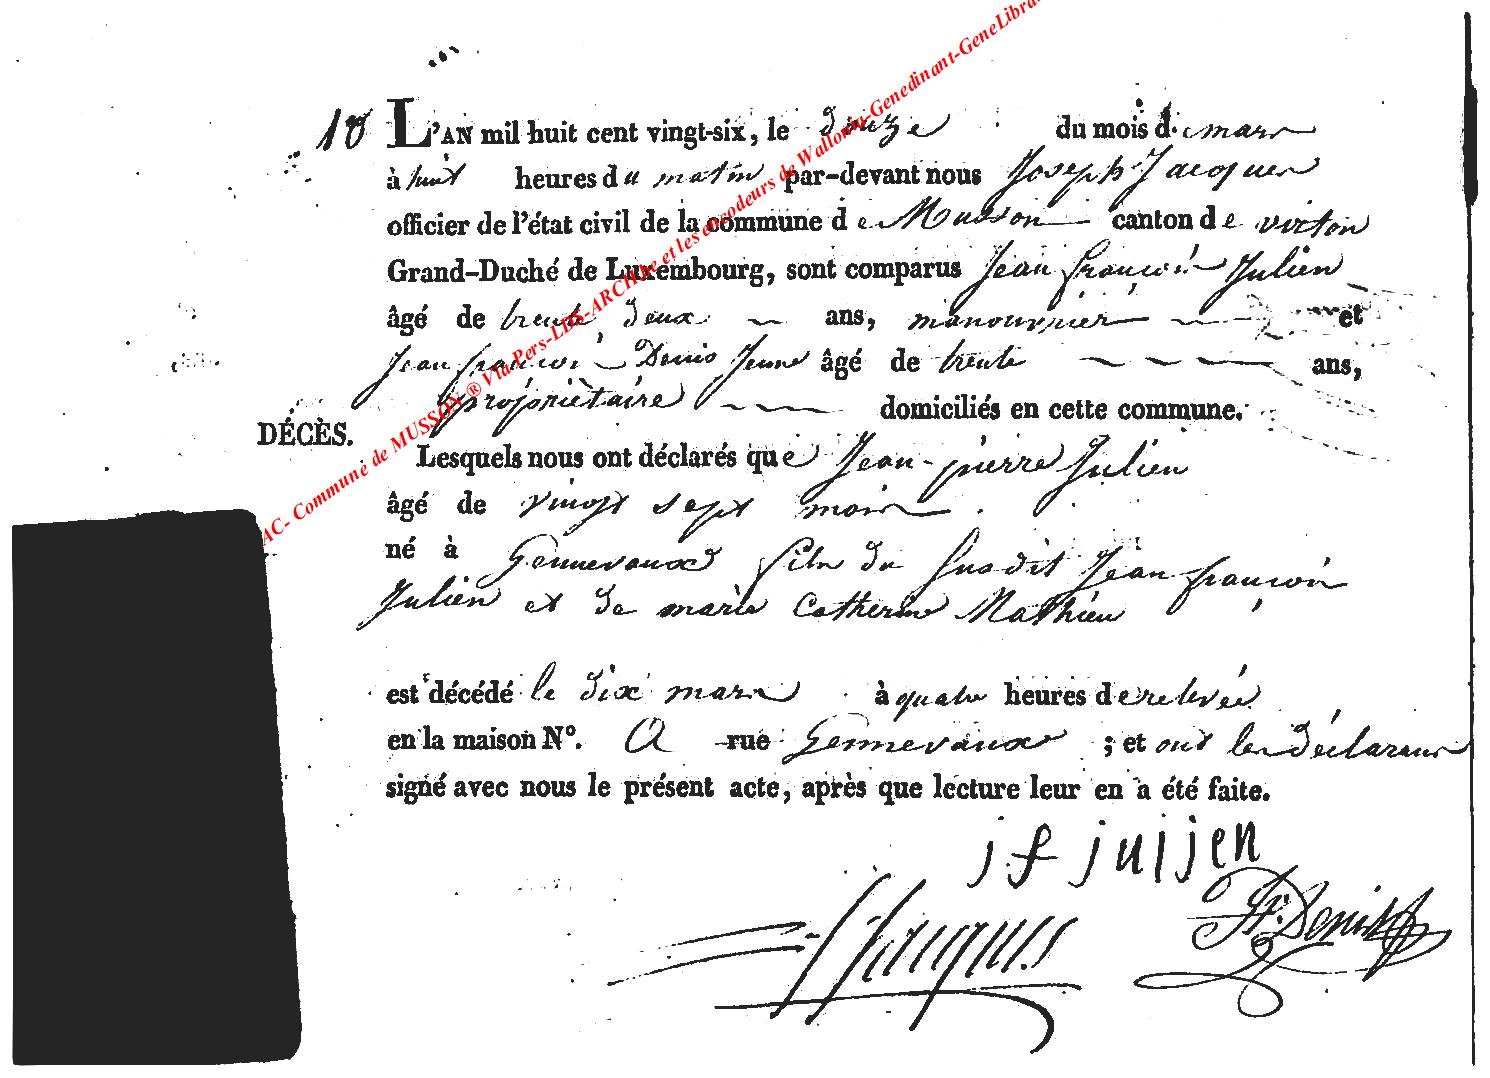 10 L'AN mil huit cent vingt-six, le douze du mois de mars
à huit heures du matin par-devant nous Joseph Jacques
officier de l'état civil de la commune de Musson canton de virton
Grand-Duché de Luxembourg, sont comparus Jean françois Julien
âgé de trente deux ans, manouvrier et
Jean françois Denis Jeune âgé de trente ans,
propriètaire domiciliés en cette commune.
DÉCÈS.
Lesquels nous ont déclarés que Jean-pierre Julien
âgé de vingt sept mois.
né à Gennevaux fils du susdit Jean françois
Julien et de marie Catherine Mathieu
est décédé le dix mars à quatre heures de relevée
en la maison Nº. rue Gennevaux ; et ont les déclarans
signé avec nous le présent acte, après que lecture leur en a été faite.
j f juljen
Jacques
Denis
AC- Commune de MUSSON ® Via Pers-LDS-ARCHae et les encodeurs de Wallonia-Genedinant-GeneLibra